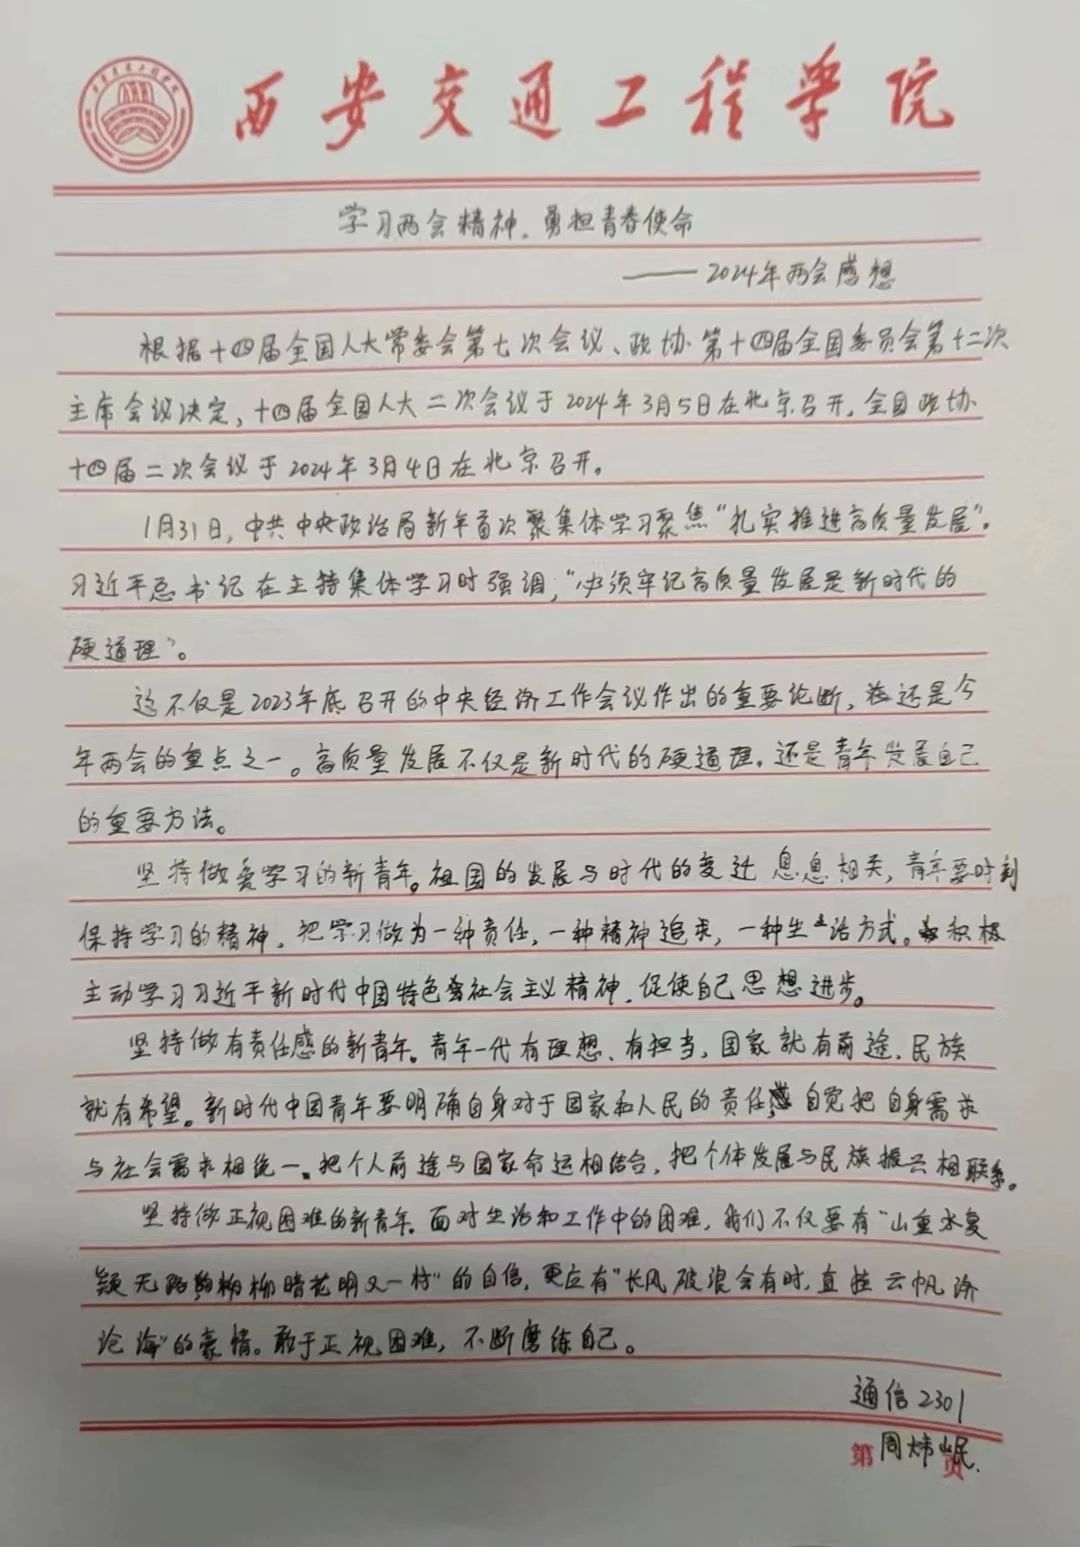 西安交通工程学院
学习两会精神，勇担青春使命
——2024年两会感想
根据十四届全国人大常委会第七次会议、政协第十四届全国委员会第十二次
主席会议决定，十四届全国人大二次会议于2024年3月5日在北京召开，全国政协
十四届二次会议于2024年3月4日在北京召开。
1月31日，中共中央政治局新年首次聚集体学习聚焦“扎实推进高质量发展”。
习近平总书记在主持集体学习时强调，“必须牢记高质量发展是新时代的
硬道理”。
这不仅是2023年底召开的中央经济工作会议作出的重要论断，还是今
年两会的重点之一。高质量发展不仅是新时代的硬道理，还是青年发展自己
的重要方法。
坚持做爱学习的新青年。祖国的发展与时代的变迁息息相关，青年要时刻
保持学习的精神，把学习做为一种责任，一种精神追求，一种生活方式。积极
主动学习习近平新时代中国特色社会主义精神，促使自己思想进步。
坚持做有责任感的新青年。青年一代有理想、有担当，国家就有前途，民族
就有希望。新时代中国青年要明确自身对于国家和人民的责任，自觉把自身需求
与社会需求相统一。把个人前途与国家命运相结合，把个体发展与民族振兴相联系。
坚持做正视困难的新青年。面对生活和工作中的困难，我们不仅要有“山重水复
疑无路柳暗花明又一村”的自信，更应有“长风破浪会有时，直挂云帆济
沧海”的豪情。敢于正视困难，不断磨练自己。
通信2301
第 周炜岷 页